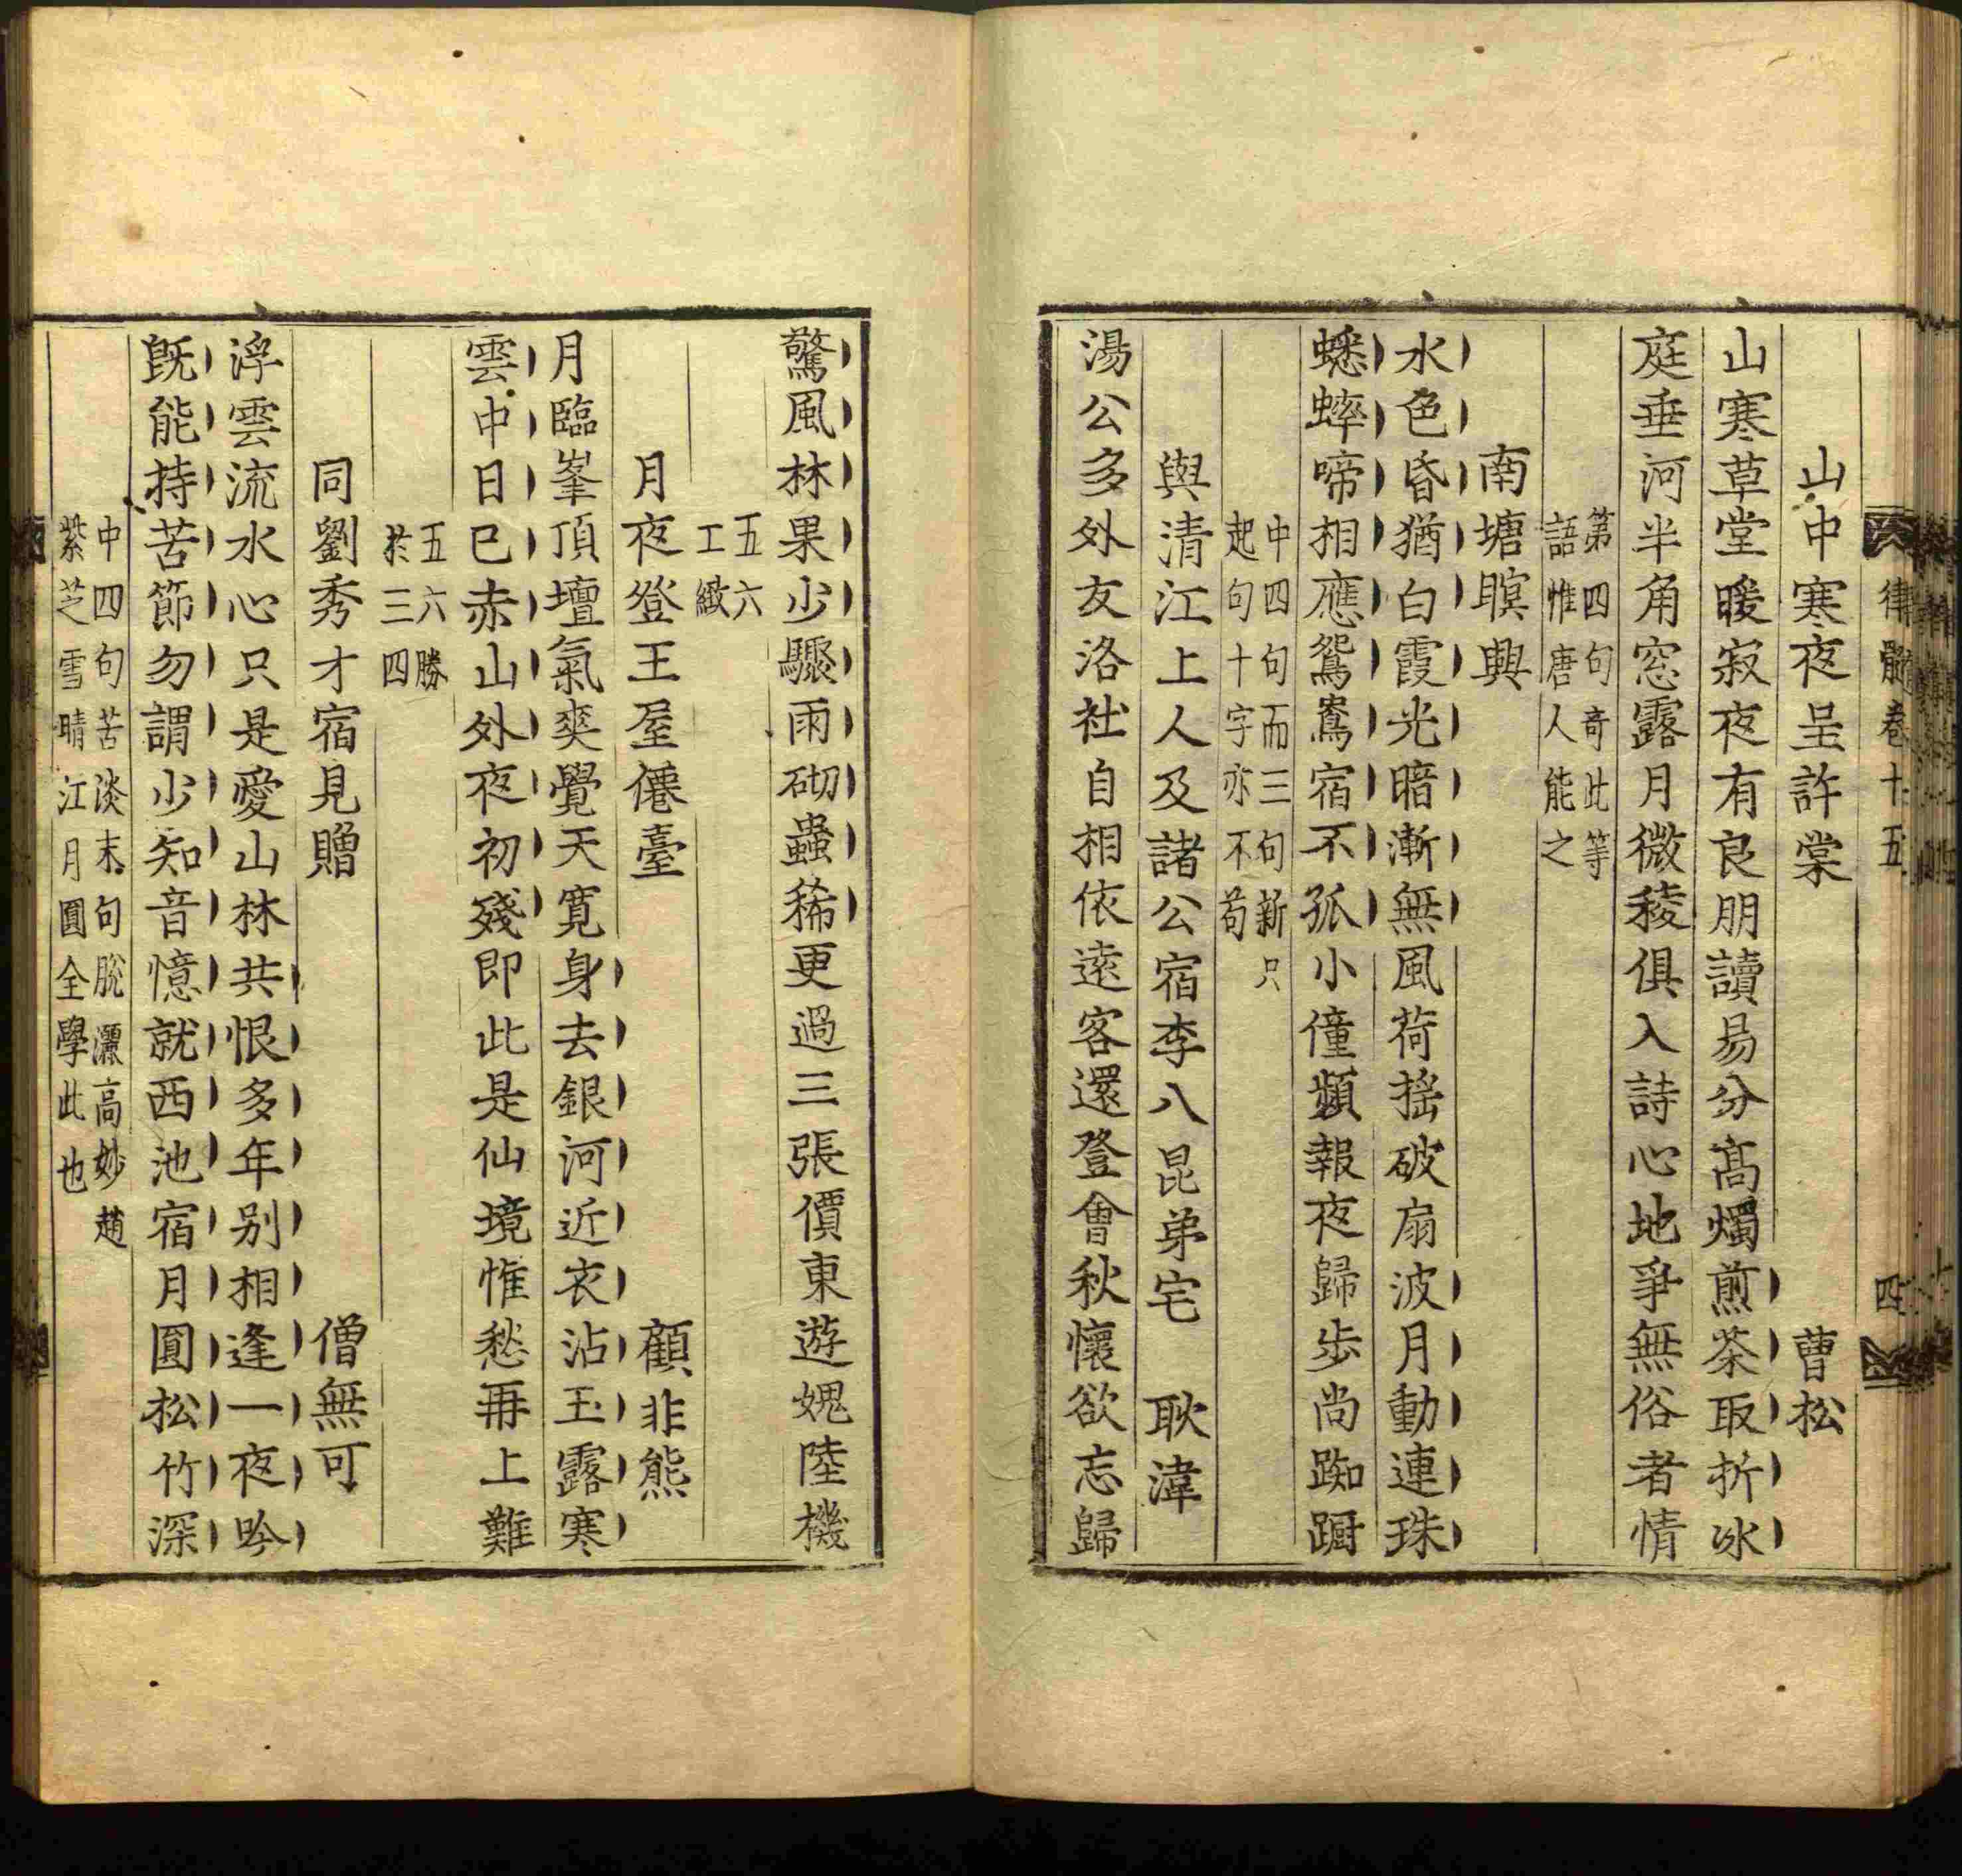 律髓卷十五
四
山中寒夜呈許棠 曹松
山寒草堂暖寂夜有良朋讀易分高燭煎茶取折冰
庭垂河半角窓露月微稜俱入詩心地爭無俗者情
第四句奇此等
語惟唐人能之
南塘瞑興
水色昏猶白霞光暗漸無風荷揺破扇波月動連珠
蟋蟀啼相應鴛鴦宿不孤小僮頻報夜歸步尚踟蹰
中四句而三句新只
起句十字亦不苟
與清江上人及諸公宿李八昆弟宅 耿湋
湯公多外友洛社自相依遠客還登會秋懷欲忘歸
驚風林果少驟雨砌蟲稀更過三張價東遊媿陸機
五六
工緻
月夜登王屋僊臺 顧非熊
月臨峯頂壇氣爽覺天寬身去銀河近衣沾玉露寒
雲中日已赤山外夜初殘即此是仙境惟愁再上難
五六勝
於三四
同劉秀才宿見贈 僧無可
浮雲流水心只是愛山林共恨多年别相逢一夜吟
旣能持苦節勿謂少知音憶就西池宿月圓松竹深
中四句苦淡末句脫灑高妙趙
紫芝雪晴江月圓全學此也